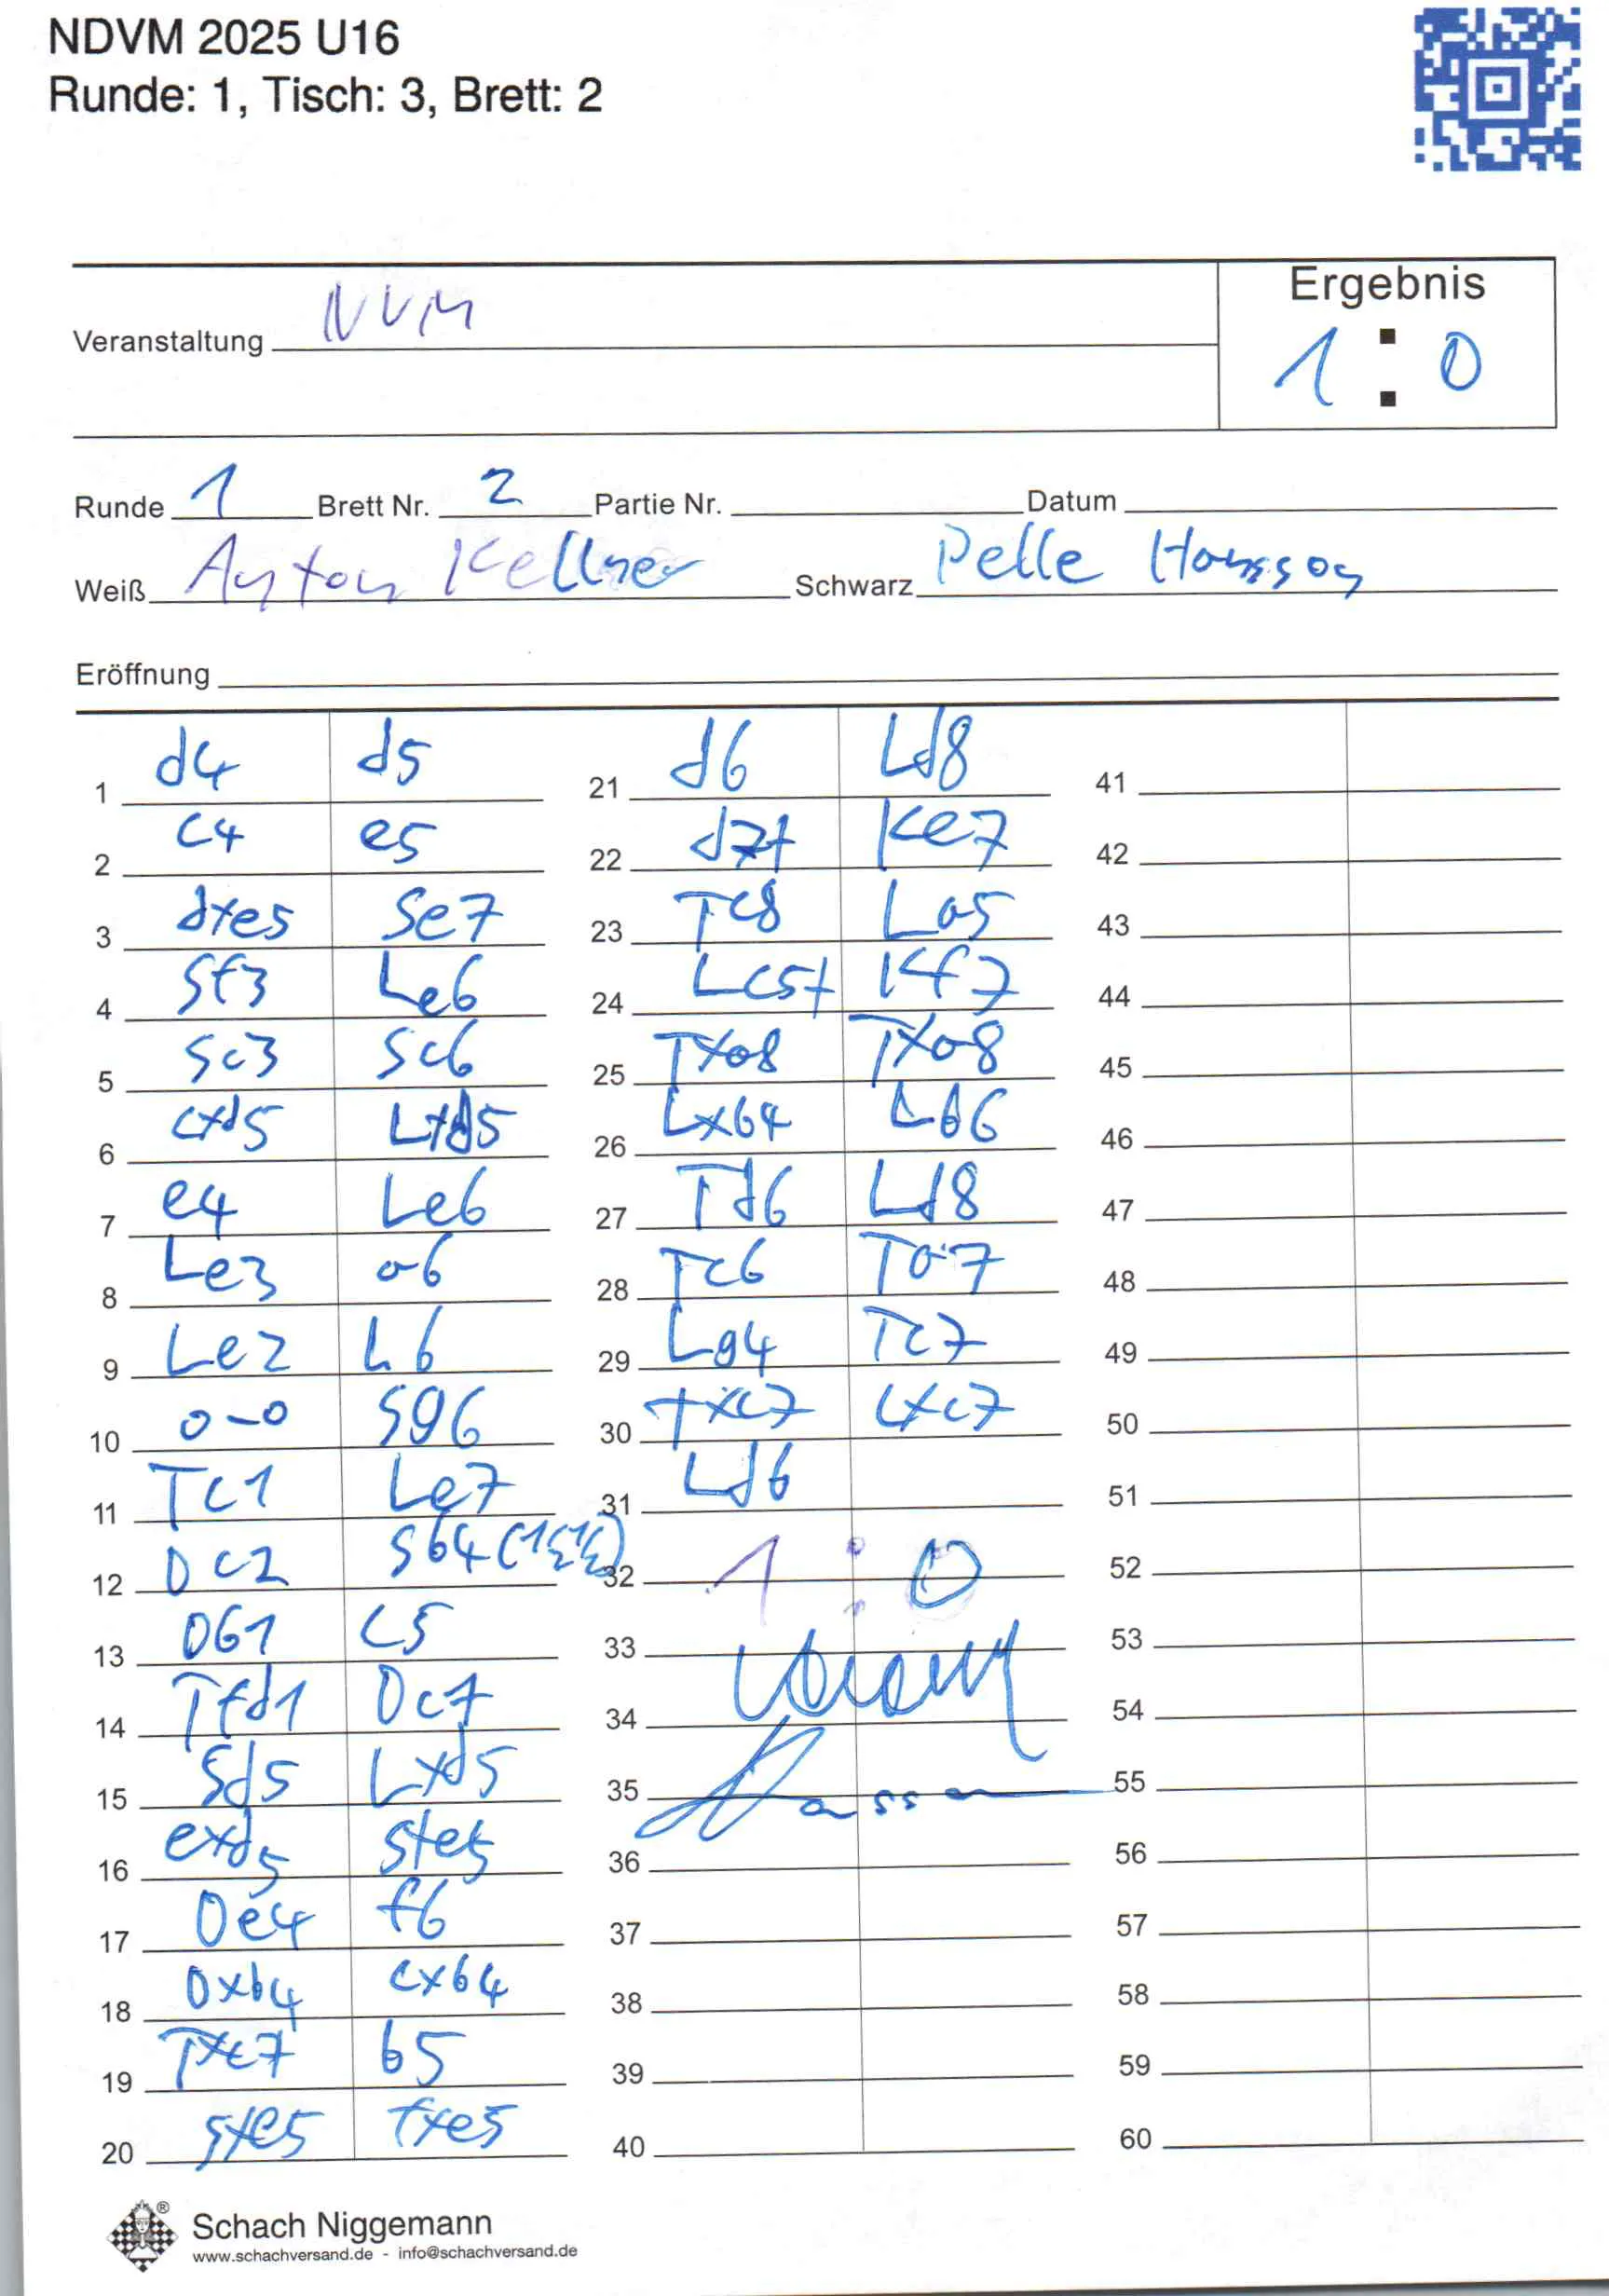 NDVM 2025 U16
Runde: 1, Tisch: 3, Brett: 2
Ergebnis
Veranstaltung NVM
1 : 0
Runde 1 Brett Nr. 2 Partie Nr. Datum
Weiß Anton Kellner Schwarz Pelle Hansson
Eröffnung
1 d4 d5
2 c4 e5
3 dxe5 Se7
4 Sf3 Le6
5 Sc3 Sc6
6 cxd5 Lxd5
7 e4 Le6
8 Le3 a6
9 Le2 h6
10 0-0 Sg6
11 Tc1 Le7
12 Dc2 Sb4 (1/2 1/2)
13 Db1 c5
14 Tfd1 Dc7
15 Sd5 Lxd5
16 exd5 Sxe5
17 De4 f6
18 Dxb4 cxb4
19 Txc7 b5
20 Sxe5 fxe5
21 d6 Ld8
22 d7+ Ke7
23 Tc8 La5
24 Lc5+ Kf7
25 Txa8 Txa8
26 Lxb4 Lb6
27 Td6 Ld8
28 Tc6 Ta7
29 Lg4 Tc7
30 Txc7 Lxc7
31 Ld6
32 1 : 0
33
34
35 Hansson
36
37
38
39
40
41
42
43
44
45
46
47
48
49
50
51
52
53
54
55
56
57
58
59
60
Schach Niggemann
www.schachversand.de - info@schachversand.de